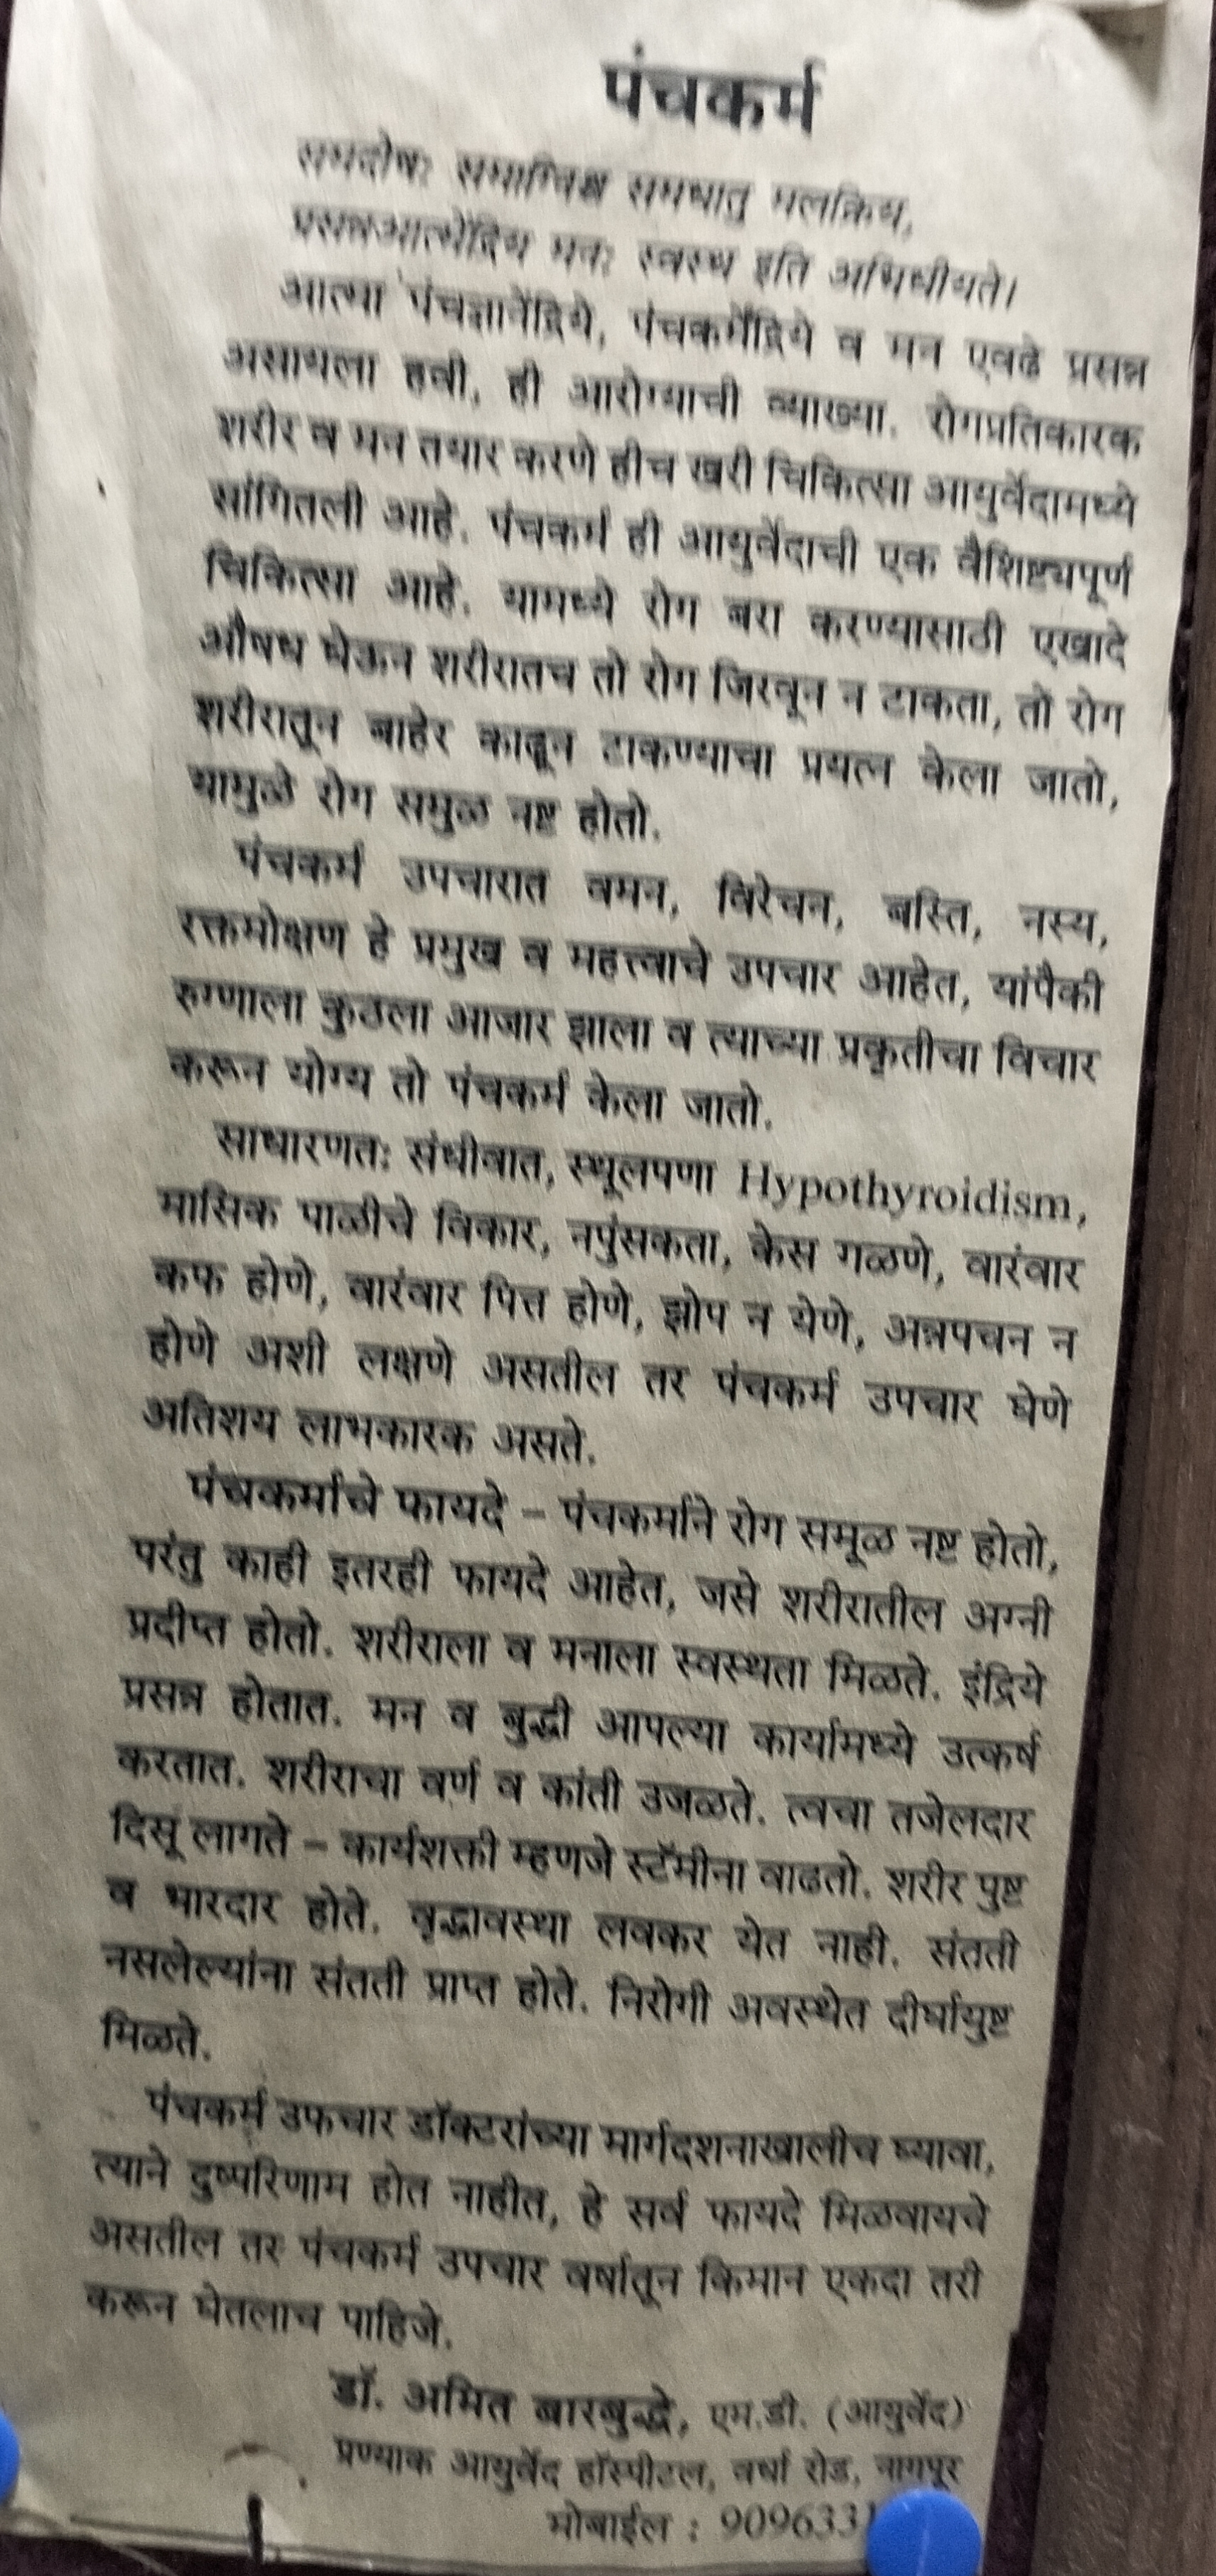 पंचकर्म
समदोषः समाग्निश्च समधातु मलक्रिय,
प्रसन्नआत्मेंद्रिय मनः स्वस्थ इति अभिधीयते।
आत्मा पंचज्ञानेंद्रिये, पंचकर्मेंद्रिये व मन एवढे प्रसन्न
असायला हवी, ही आरोग्याची व्याख्या. रोगप्रतिकारक
शरीर व मन तयार करणे हीच खरी चिकित्सा आयुर्वेदामध्ये
सांगितली आहे. पंचकर्म ही आयुर्वेदाची एक वैशिष्ट्यपूर्ण
चिकित्सा आहे. यामध्ये रोग बरा करण्यासाठी एखादे
औषध घेऊन शरीरातच तो रोग जिरवून न टाकता, तो रोग
शरीरातून बाहेर काढून टाकण्याचा प्रयत्न केला जातो,
यामुळे रोग समुळ नष्ट होतो.
पंचकर्म उपचारात वमन, विरेचन, बस्ति, नस्य,
रक्तमोक्षण हे प्रमुख व महत्त्वाचे उपचार आहेत, यांपैकी
रुग्णाला कुठला आजार झाला व त्याच्या प्रकृतीचा विचार
करून योग्य तो पंचकर्म केला जातो.
साधारणतः संधीवात, स्थूलपणा Hypothyroidism,
मासिक पाळीचे विकार, नपुंसकता, केस गळणे, वारंवार
कफ होणे, वारंवार पित्त होणे, झोप न येणे, अन्नपचन न
होणे अशी लक्षणे असतील तर पंचकर्म उपचार घेणे
अतिशय लाभकारक असते.
पंचकर्माचे फायदे – पंचकर्माने रोग समूळ नष्ट होतो,
परंतु काही इतरही फायदे आहेत, जसे शरीरातील अग्नी
प्रदीप्त होतो. शरीराला व मनाला स्वस्थता मिळते. इंद्रिये
प्रसन्न होतात. मन व बुद्धी आपल्या कार्यामध्ये उत्कर्ष
करतात. शरीराचा वर्ण व कांती उजळते. त्वचा तजेलदार
दिसू लागते – कार्यशक्ती म्हणजे स्टॅमीना वाढतो. शरीर पुष्ट
व भारदार होते. वृद्धावस्था लवकर येत नाही. संतती
नसलेल्यांना संतती प्राप्त होते. निरोगी अवस्थेत दीर्घायुष्ट
मिळते.
पंचकर्म उफचार डॉक्टरांच्या मार्गदशनाखालीच घ्यावा,
त्याने दुष्परिणाम होत नाहीत, हे सर्व फायदे मिळवायचे
असतील तर पंचकर्म उपचार वर्षातून किमान एकदा तरी
करून घेतलाच पाहिजे.
डॉ. अमित बारबुद्धे, एम.डी. (आयुर्वेद)
प्रण्याक आयुर्वेद हॉस्पीटल, वर्धा रोड, नागपूर
मोबाईल : 9096331